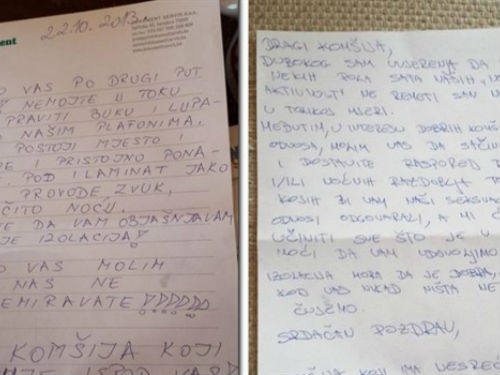 22.10.2013.
O VAS PO DRUGI PUT
NEMOJTE U TOKU
PRAVITI BUKU I LUPA-
NAŠIM PLAFONIMA.
POSTOJI MJESTO I
E I PRISTOJNO PONA-
POD I LAMINAT JAKO
PROVODE ZVUK,
ČITO NOĆU.
TE DA VAM OBJAŠNJAVAM
JE IZOLACIJA!
O VAS MOLIM
NAS NE
EMIRAVATE !!!!!!
KOMŠIJA KOJI
ISPOD VAS
DRAGI KOMŠIJA,
DUBOKOG SAM UVJERENJA DA
NEKIH POLA SATA NAŠIH
AKTIVNOSTI NE REMETI SAN
U TOLIKOJ MJERI.
MEĐUTIM, U INTERESU DOBRIH
ODNOSA, MOLIM VAS DA SAČINI
I DOSTAVITE RASPORED
I/ILI NOĆNIH RAZDOBLJA
KOJIH BI VAM NAŠI SEKSUA
ODNOSI ODGOVARALI, A MI Ć
UČINITI SVE ŠTO JE U
MOĆI DA VAM UDOVOLJIMO.
IZOLACIJA MORA DA JE DOBRA,
KOD VAS NIKAD NIŠTA NE
ČUJEMO.
SRDAČAN POZDRAV,
KOJI IMA